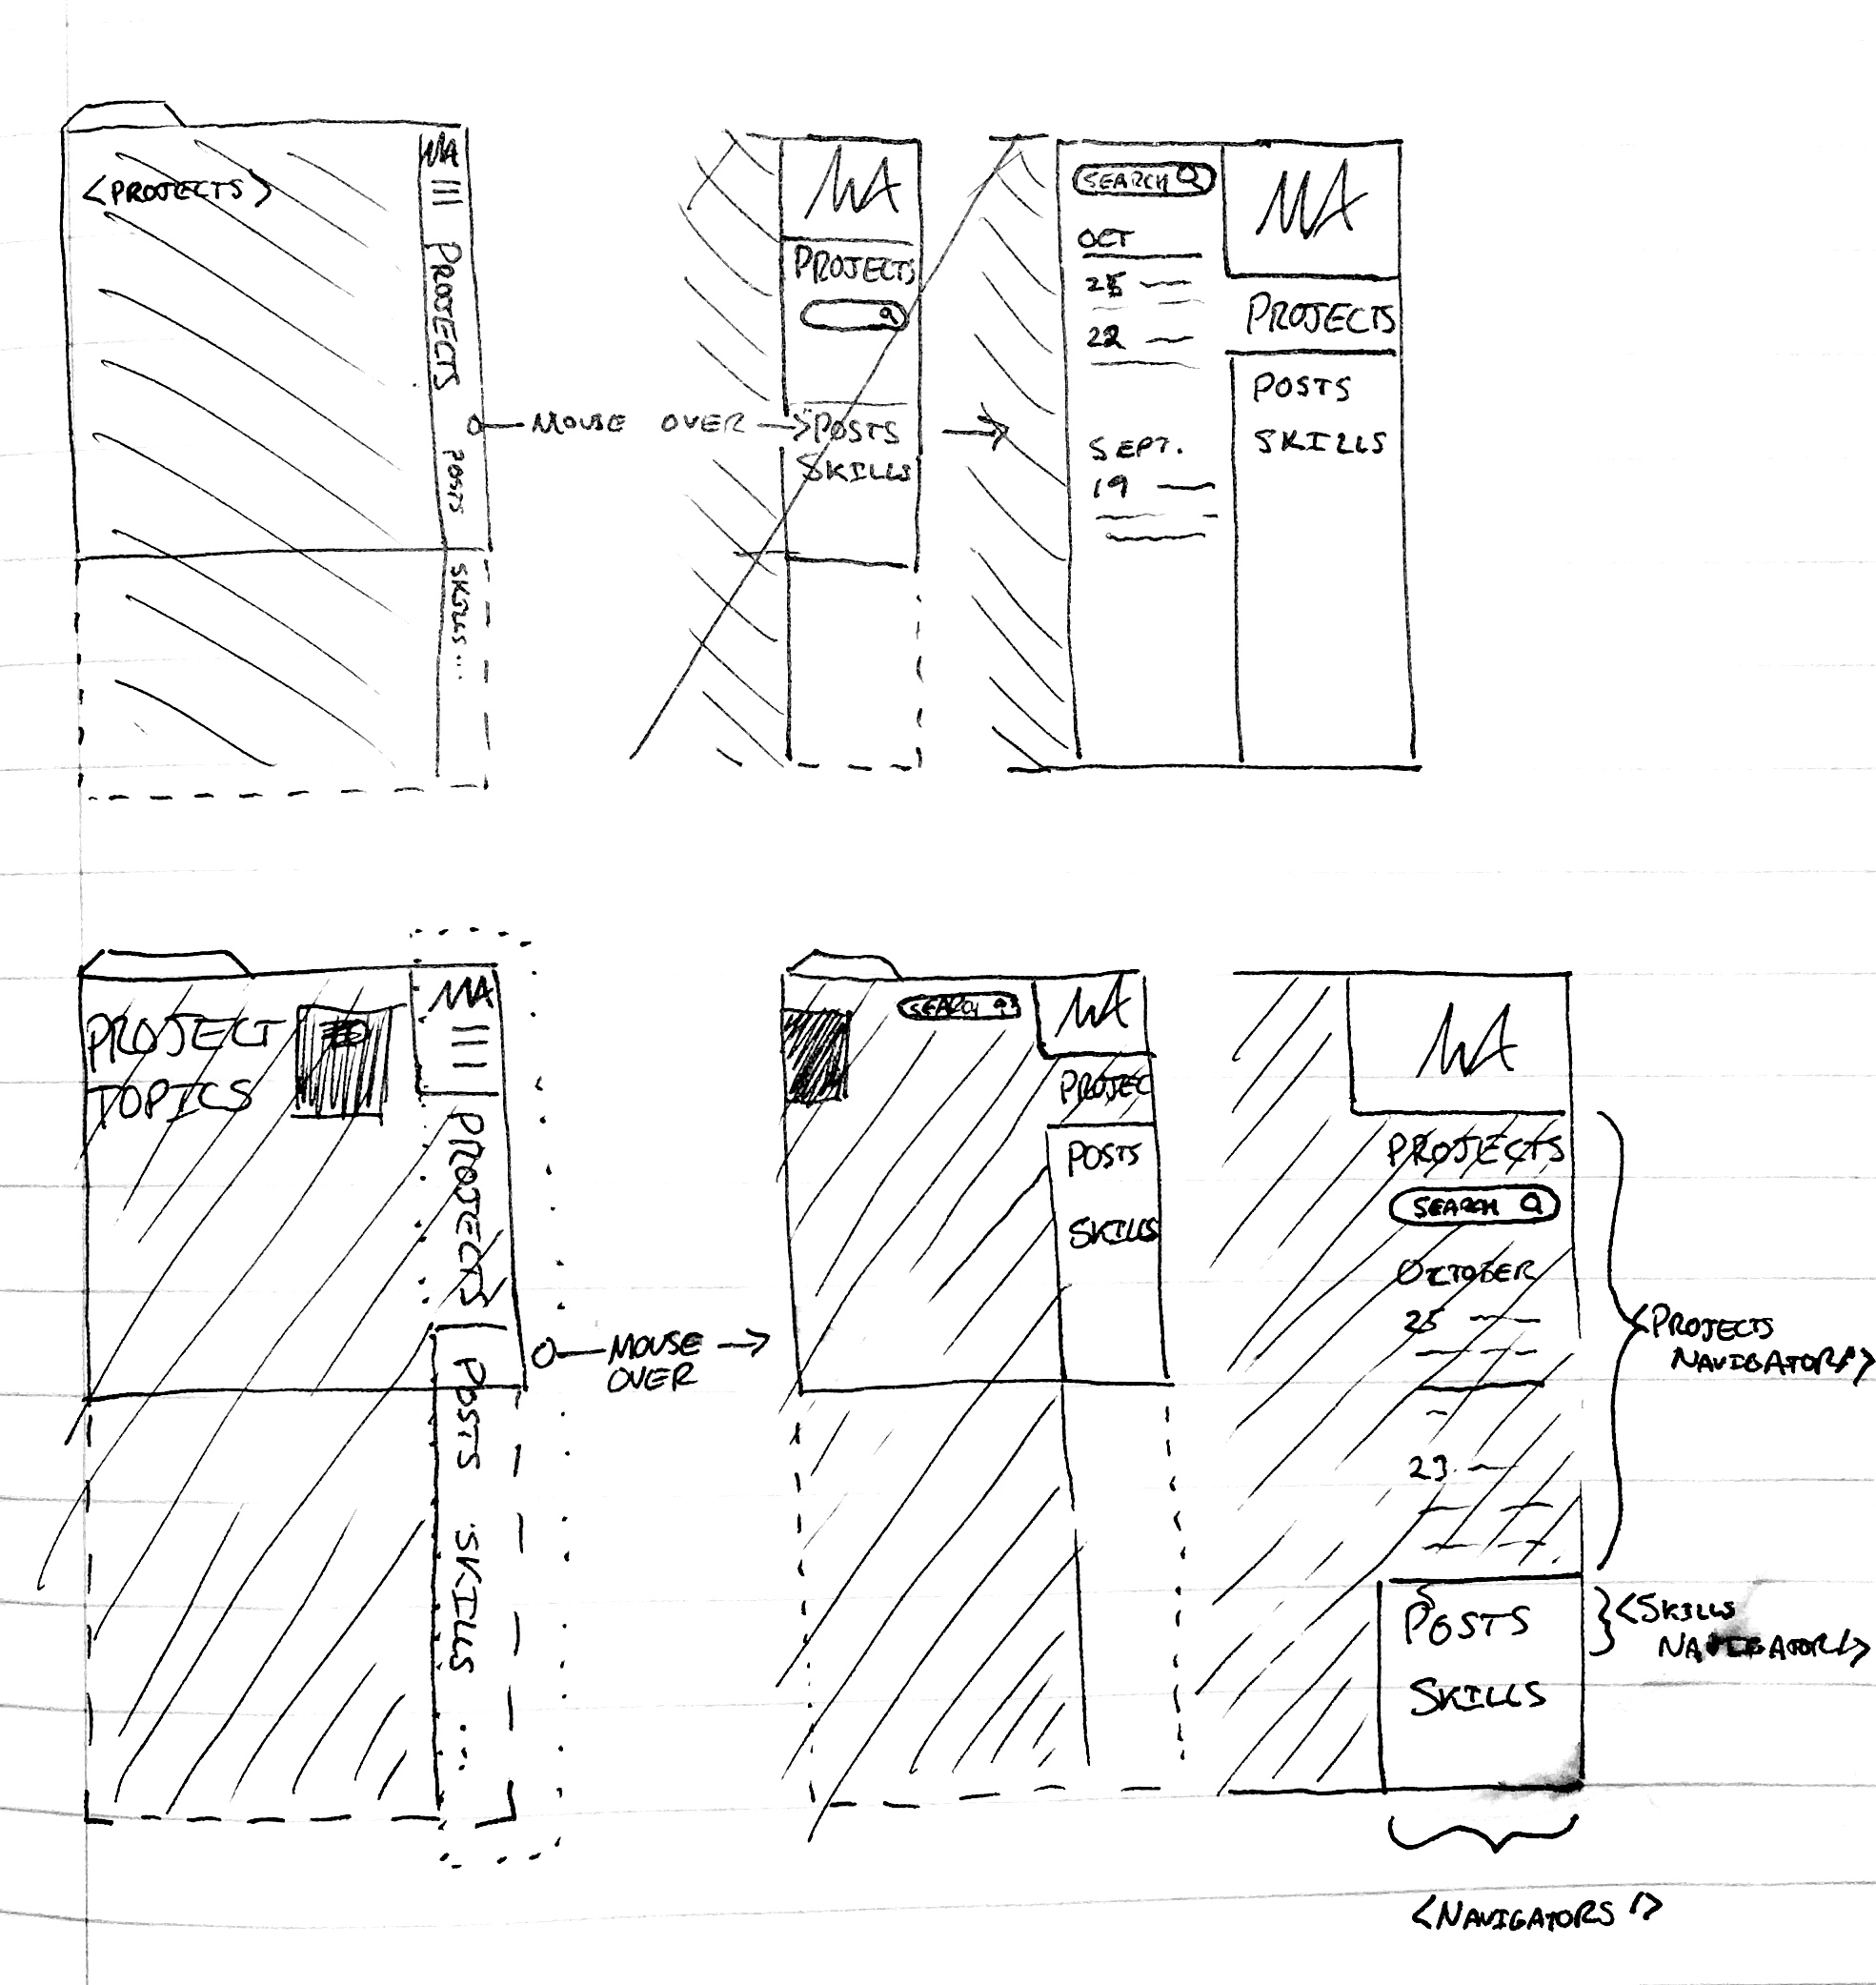 <PROJECTS>
MA
PROJECTS
POSTS
SKILLS...
MOUSE OVER
MA
PROJECTS
POSTS
SKILLS
SEARCH
OCT
25
22
SEPT.
19
MA
PROJECTS
POSTS
SKILLS
PROJECT
TOPICS
MA
PROJECTS
POSTS
SKILLS ...
MOUSE
OVER
SEARCH
MA
PROJEC
POSTS
SKILLS
MA
PROJECTS
SEARCH
OCTOBER
25
23
POSTS
SKILLS
<PROJECTS
NAVIGATOR/>
<SKILLS
NAVIGATOR/>
<NAVIGATORS />